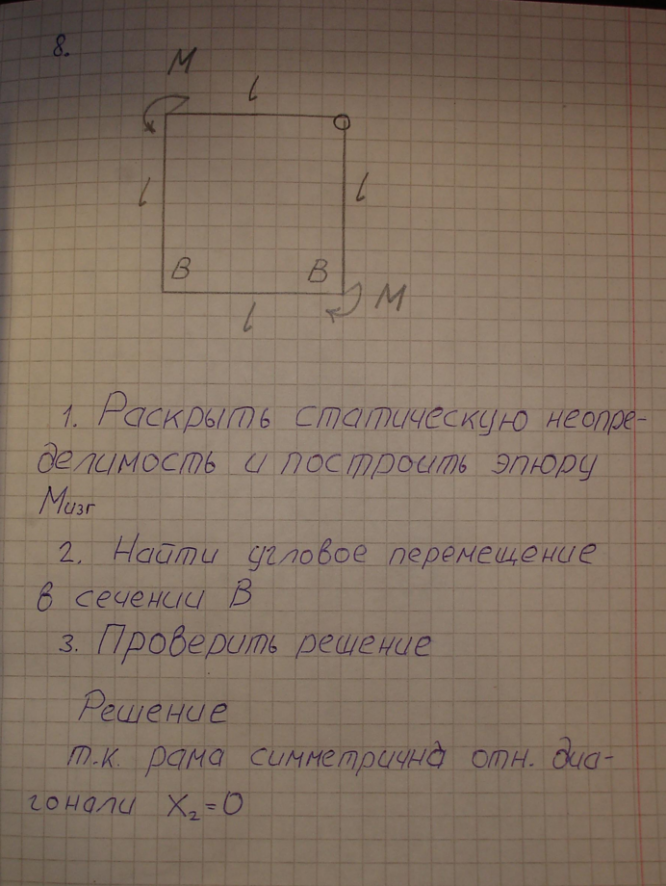 8.
M
l
l
l
B
B
M
l
1. Раскрыть статическую неопре-
делимость и построить эпюру
Мизг
2. Найти угловое перемещение
в сечении В
3. Проверить решение
Решение
т.к. рама симметрична отн. диа-
гонали X₂=0